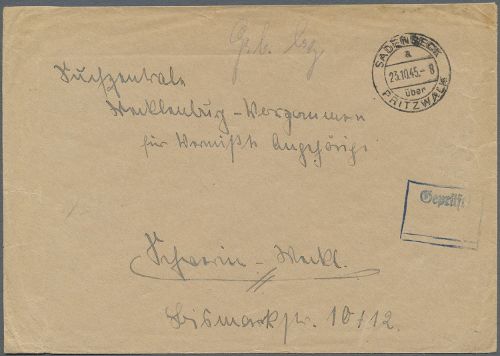 Geb. bez.
SADENBECK
a
23.10.45.- 8
über
PRITZWALK
Suchzentrale
Mecklenburg-Vorpommern
für Vermißte Angehörige
Geprüft
Schwerin - Meckl.
Bismarckstr. 10/12.